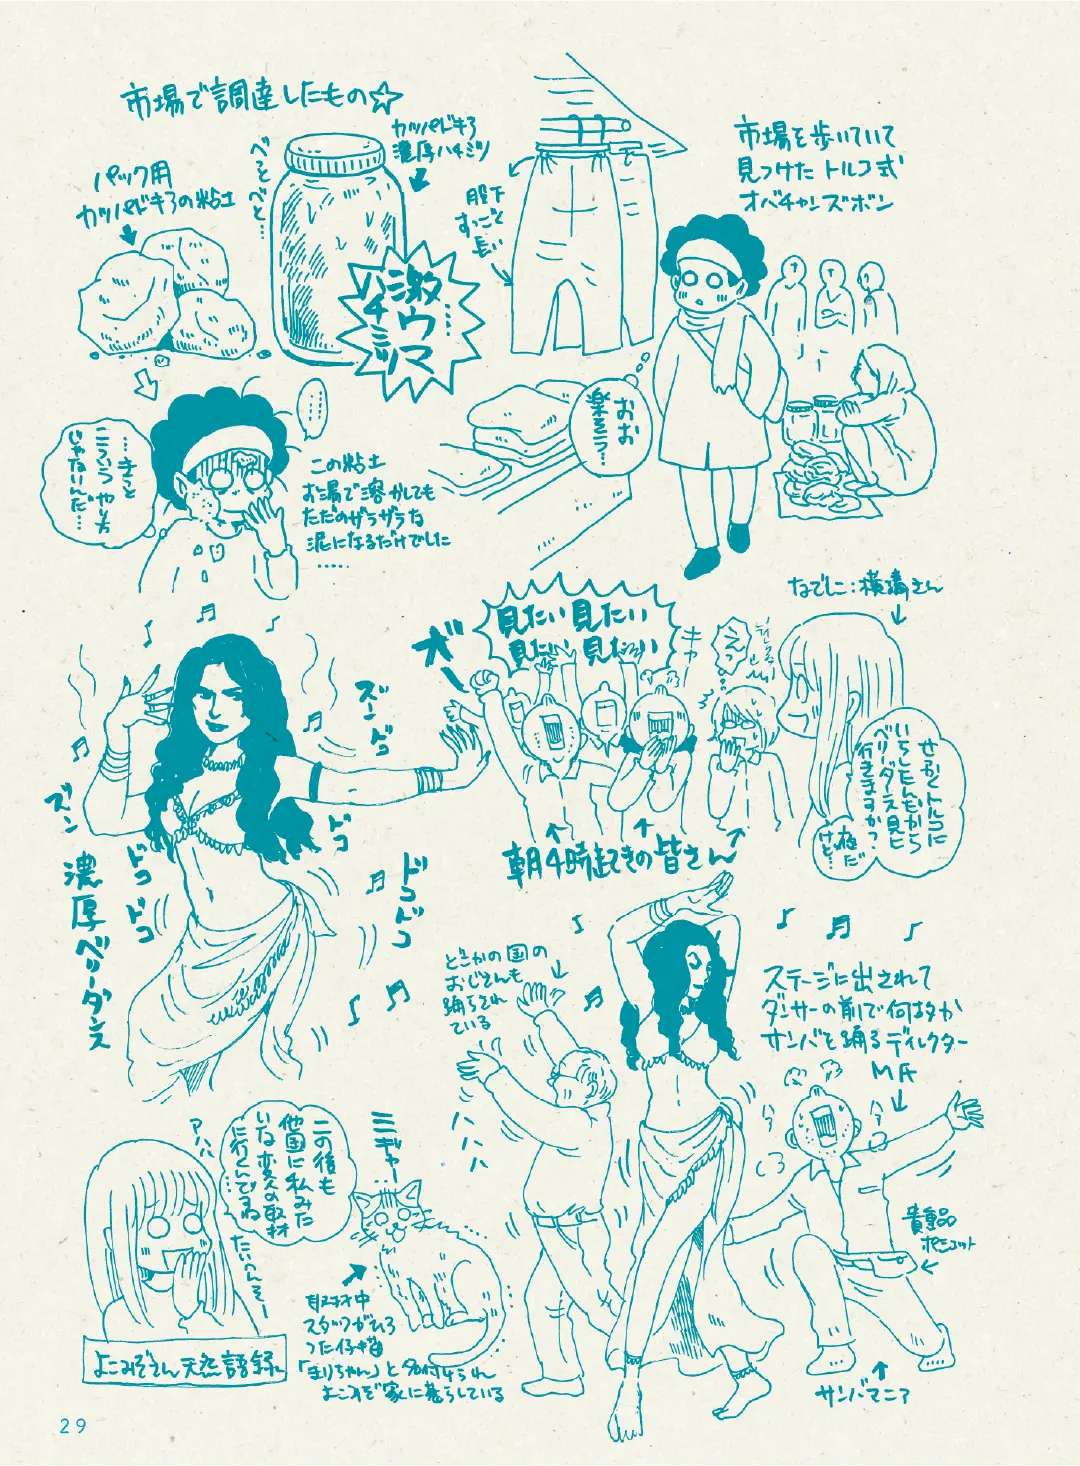 市場で調達したもの☆
パック用
カッパドキアの粘土
べっとべと…
カッパドキア
濃厚ハチミツ
激ウマ……
ハチミツ
股下
すっごく
長い
市場を歩いていて
見つけた トルコ式
オバチャンズボン
おお
楽そう…
…きっと
こういうやり方
じゃないんだ…
この粘土
お湯で溶かしても
ただのザラザラな
泥になるだけでした
……
なでしこ:横溝さん
↓
見たい見たい
見たい見たい
オー
キャー
えっ
せっかくトルコに
いらしたんだから
ベリーダンス見に
行きますか?
夜だ
けど…
朝4時起きの皆さん
ズンドコ
ズン
ドコ
ドコ
ドコ
ドコドコ
濃厚ベリーダンス
どこかの国の
おじさんも
踊らされ
ている
ハハハ
ステージに出されて
ダンサーの前で何故か
サンバを踊るディレクター
MA
貴重品
ポシェット
サンバマニア
アハハ
この後も
他国に私みた
いな変人の取材
に行くんですね
…
たいへんそー
ミギャー
取材中
スタッフがひろ
った仔猫
「まりちゃん」と名付けられ
よこみぞ家に暮らしている
よこみぞさん天然語録
29